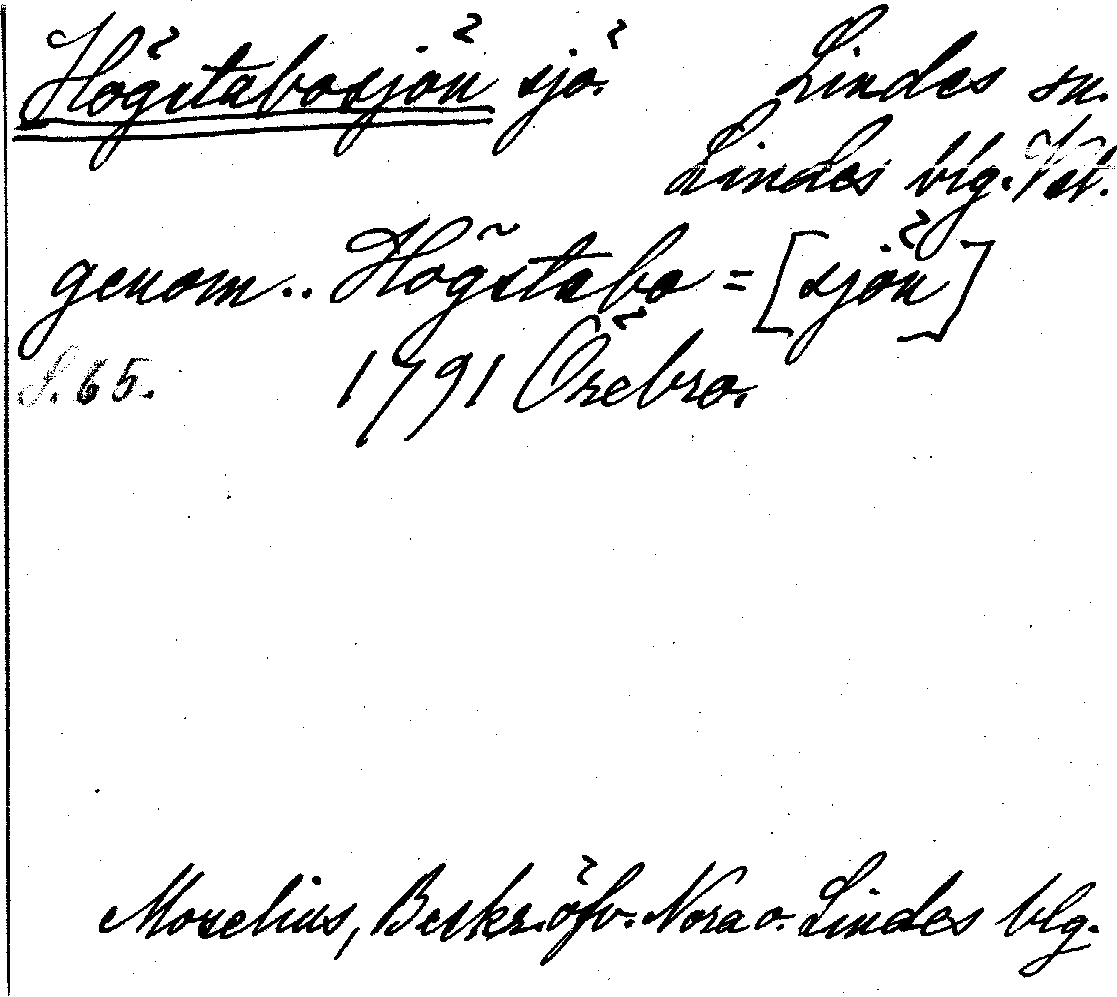 Högstabosjön sjö. Lindes sn.
Lindes blg. Vstl.
genom.. Högstabo = [sjön]
S. 65. 1791 Örebro.
Moselius, Beskr. öfv. Nora o. Lindes blg.